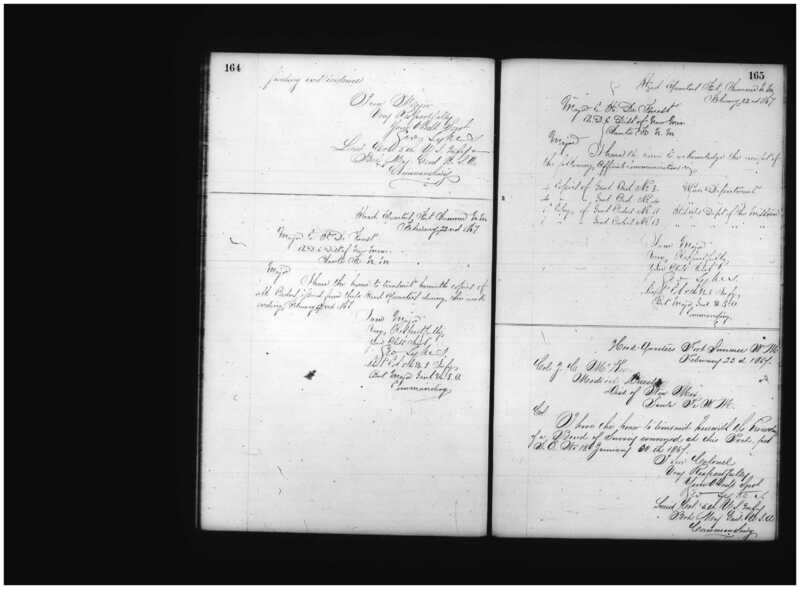 164
I am Major
Very Respectfully
Your Obdt Servt
Geo. Sykes
Lieut Col 5th U.S. Infy
Bvt Maj Genl U.S.A.
Commanding
Head Quarters Fort Sumner N.M.
February 22nd 1867
Major C. H. De Forest
A.D.C. Dist of New Mex
Santa Fe N.M.
Major
I have the honor to transmit herewith copies of
all Orders issued from these Head Quarters during the week
ending February 22nd 1867
I am Major
Very Respectfully
Your Obdt Servt
Geo. Sykes
Lieut Col 5th U.S. Infy
Bvt Maj Genl U.S.A.
Commanding
165
Head Quarters Fort Sumner N.M.
February 22nd 1867
Major C. H. De Forest
A.D.C. Dist of New Mex
Santa Fe N.M.
Major
I have the honor to acknowledge the receipt of
the following Official communications
Copies of Genl Ord No War Department
" " Genl Ord No
Copy of Genl Orders No Dept of the Missouri
" " Genl Orders No 13 " " "
I am Major
Very Respectfully
Your Obdt Servt
Geo. Sykes
Lieut Col 5th U.S. Infy
Bvt Maj Genl U.S.A.
Commanding
Head Quarters Fort Sumner N.M.
February 23d 1867.
Col J. C. McKee
Medical Director
Dist of New Mex
Santa Fe N.M.
Col
I have the honor to transmit herewith the Proceedings
of a Board of Survey convened at this Post, per
S.O. No January 1867.
I am Colonel
Very Respectfully
Your Obdt Servt
Geo. Sykes
Lieut Col 5th U.S. Infy
Bvt Maj Genl U.S.A.
Commanding